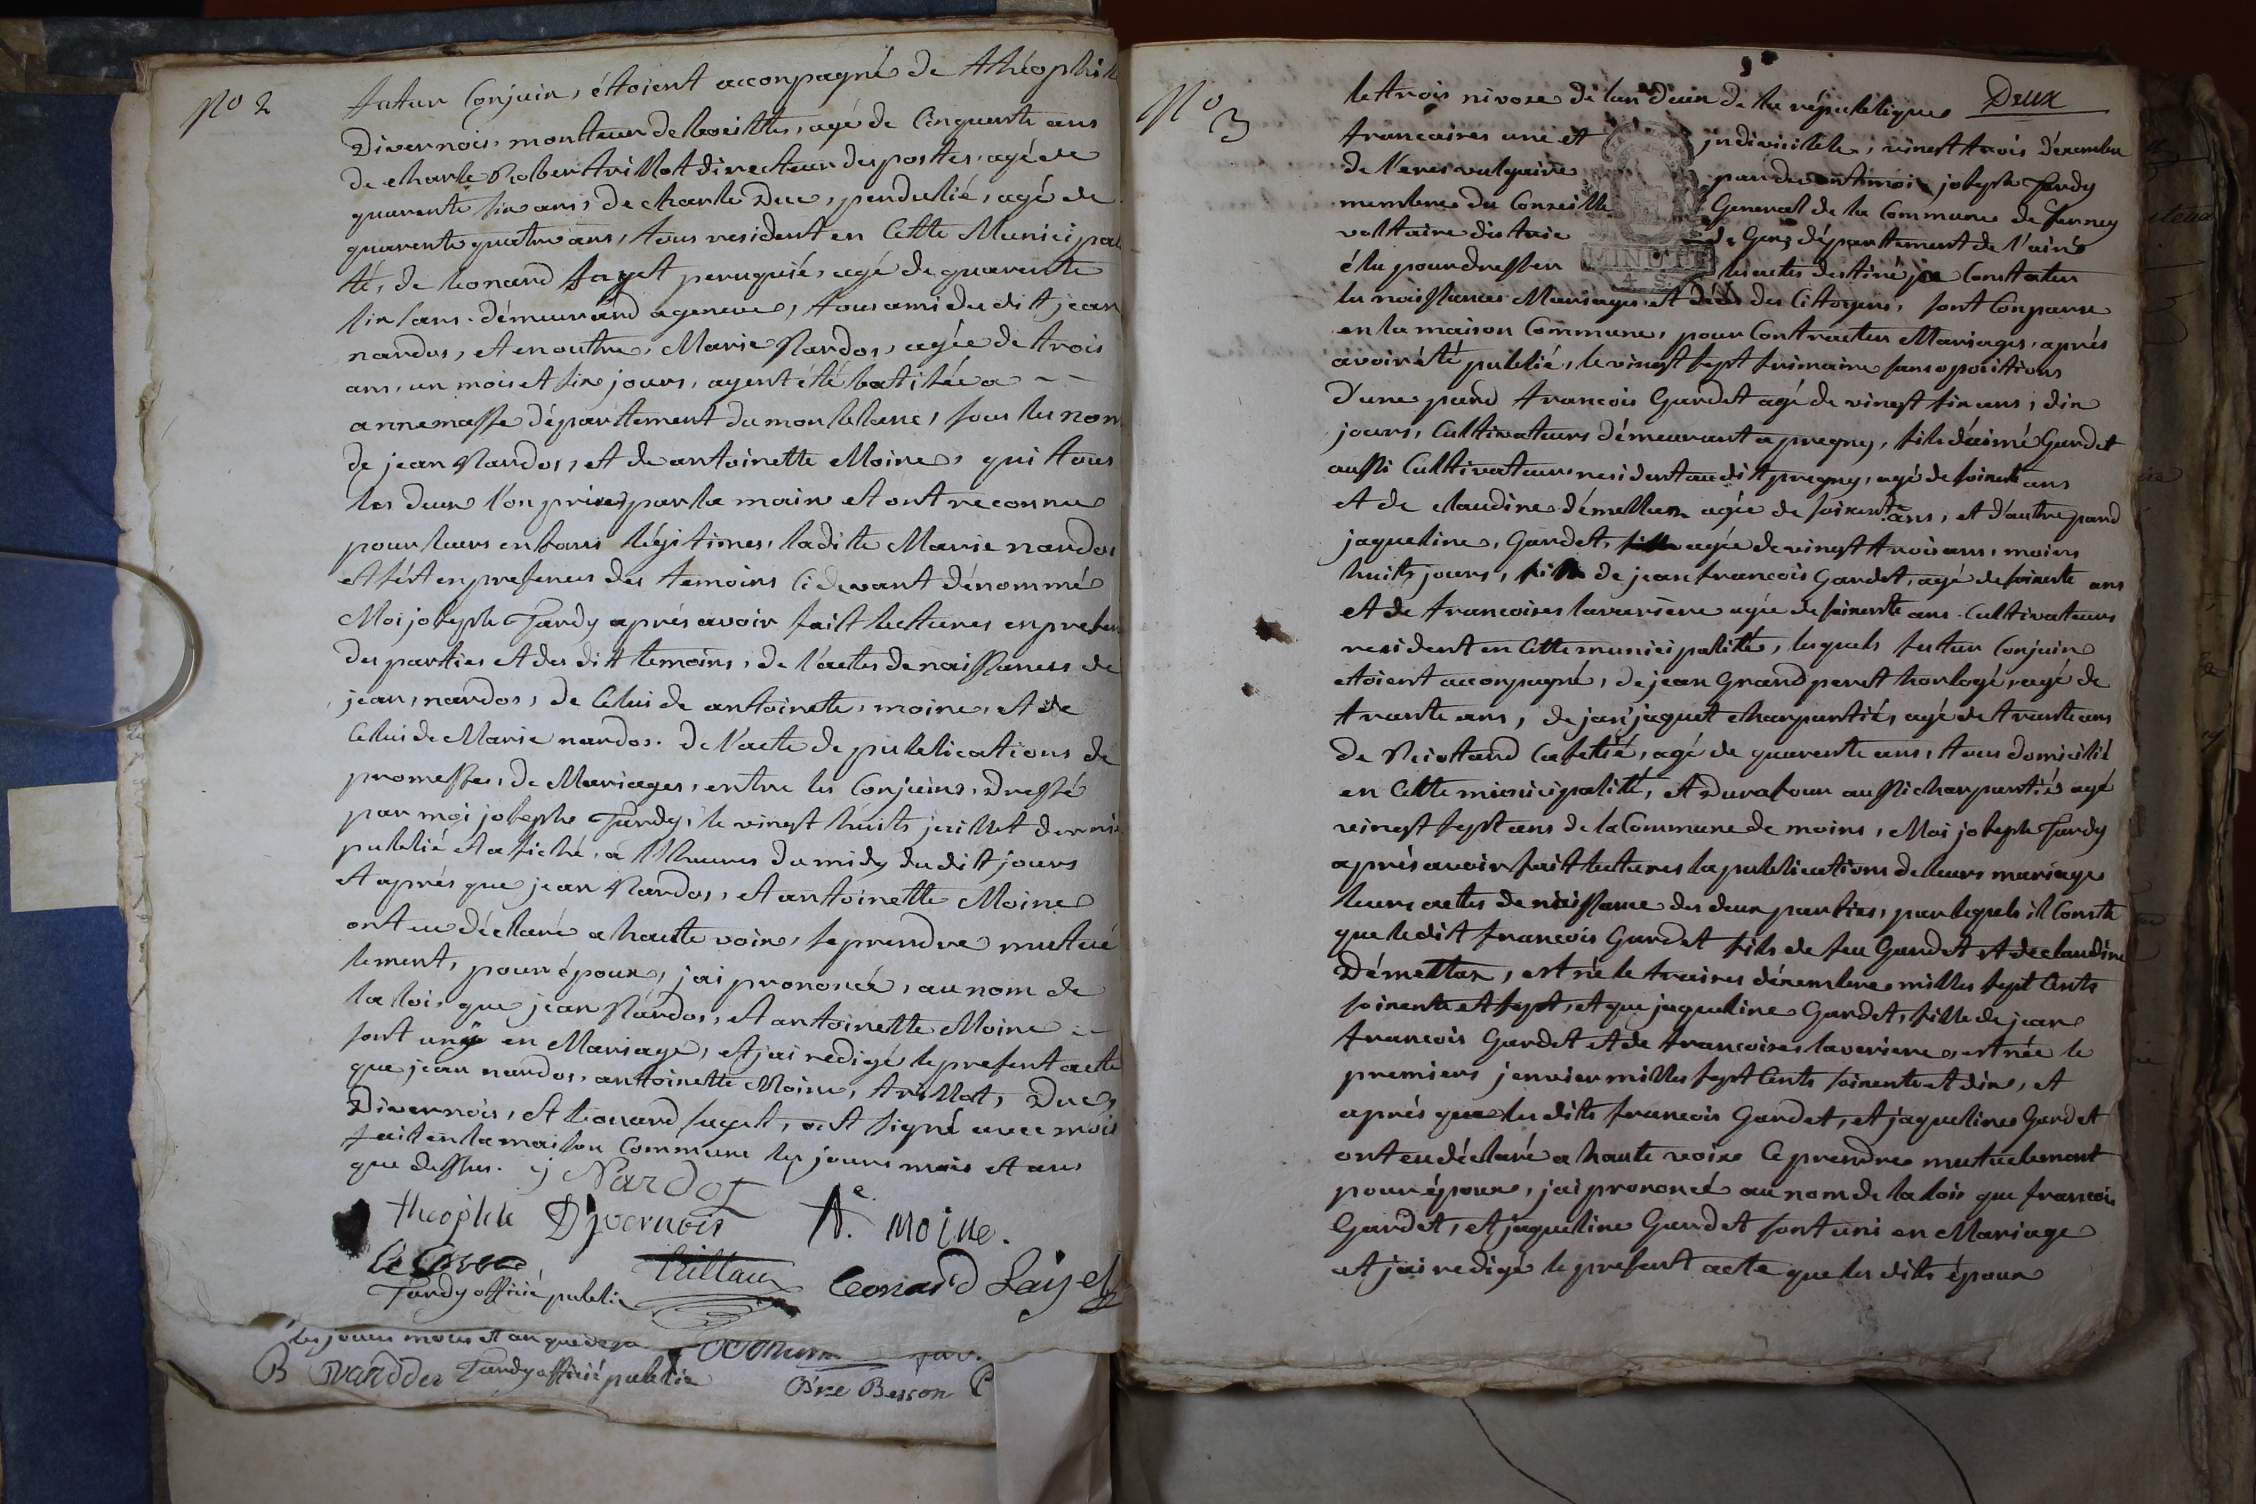 No 2
futur Conjoin, étoient acconpagné de théophile
Divernois, monteur de boeittes, agé de Cinquante ans
de charle Robert trillot directeur des postes, agé de
quarente six ans, de charle Duc, pendulié, agé de
quarente quatre ans, tous resident en Cette Municipal
té, de leonard fayet peruquié, agé de quarente
six ans. démeurand a geneve, tous ami du dit jean
nardos, et en outre, Marie Nardos, agée de trois
ans, un mois et six jours, ayent été batisée a
annemasse département du mon blanc, sous les nom
de jean Nardos, et de antoinette Moine, qui tous
les deux l'on prises par la main et ont reconnu
pour leurs enfans légitimes, ladite Marie nardos
et sést en presences des temoins Cidevant dénommé
Moi joseph Tardy aprés avoir fait lectures en presen
des parties et des dit temoins, de l'actes de naissances de
jean, nardos, de Celui de antoinette, moine, et de
Celui de Marie nardos. de l'acte de publications de
promesses, de Mariages, entre les Conjoins, dressé
par moi joseph Tardy, le vingt huits juillet dernié
publié et afiché, a l'heures du midy du dit jours
et aprés que jean Nardos, et antoinette Moine
ont eu déclaré a haute voix, se prendre mutué
lement, pour époux, jai prononcé, au nom de
la loi, que jean Nardos, et antoinette Moine
sont unis en Mariage, et jai redigé le present acte
que jean nardos, antoinette Moine, trillot, Duc,
Divernois, et léonard fayet, ont signé avec mois
fait en la maison Commune les jours mois et an
que dessus. j Nardos
théophile Divernois A.e moine.
trillaut Leonard Faijet
Tardy officié public
les jours mois et an que desu
B Tardy officié public Bre Besson
No 3
Deux
le trois nivose de l'an deux de la république
francaises une et indivicible, vingt trois décembre
de l'eres vulgaire par devant moi joseph Tardy
membre du Conseille General de la Commune de ferney
voltaire distric de Gex département de l'ain
élu pour dresser les actes destiné a Constater
MINUTE
4 S.
les naissances Mariages et décés des Citoyens, sont Conparu
en la maison Commune, pour Contracter Mariages, aprés
avoir été publié, le vingt sept frimaire sans opositions
D'une pard francois Gardet agé de vingt six ans, dix
jours, Cultivateurs démeurant a pregny, fils d'aimé Gardet
aussi Cultivateurs resident au dit pregny, agé de soixente ans
et de claudine démellex agée de soixente ans, et d'autre pard
jaqueline, Gardet, agée de vingt trois ans, moins
huits jours, fille de jean francois Gardet, agé de soixente ans
et de francoises laversiere agée de soixente ans. Cultivateurs
resident en Cette municipalité, lesquels futur Conjoin
étoient acconpagné, de jean Grand peret horlogé, agé de
trante ans, de jaquet charpantié, agé de trante ans
de Cafetié, agé de quarente ans, tous domicilié
en Cette municipalité, et Durafour aussi charpantiés agé
vingt sept ans de la Commune de moins, Moi joseph Tardy
aprés avoir fait lectures la publications de leurs mariage
leurs actes de naissance des deux parties, par lequels il Conste
que ledit francois Gardet fils de feu Gardet et de claudine
Démellax, est né le traizes décembre milles sept Cents
soixente et sept, et que jaqueline Gardet, fille de jean
francois Gardet et de francoises laveriere, est née le
premiers jenvier milles sept Cents soixente et dix, et
aprés que les dits francois Gardet, et jaquelines Gardet
ont eu déclaré a haute voix Ce prendre mutuelement
pour époux, jai prononcé au nom de la lois que francois
Gardet, et jaqueline Gardet sont uni en Mariage
et jai redigé le present acte que les dits époux